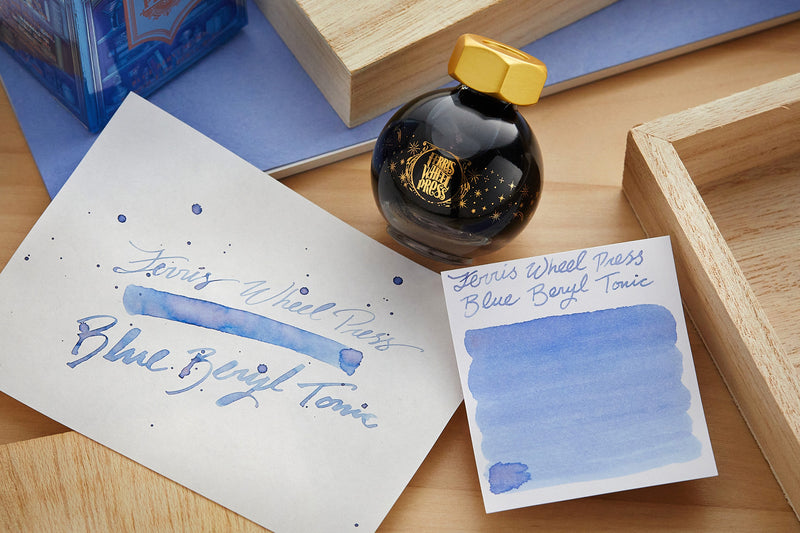 FERRIS
WHEEL
PRESS
Ferris Wheel Press
Blue Beryl Tonic
Ferris Wheel Press
Blue Beryl Tonic